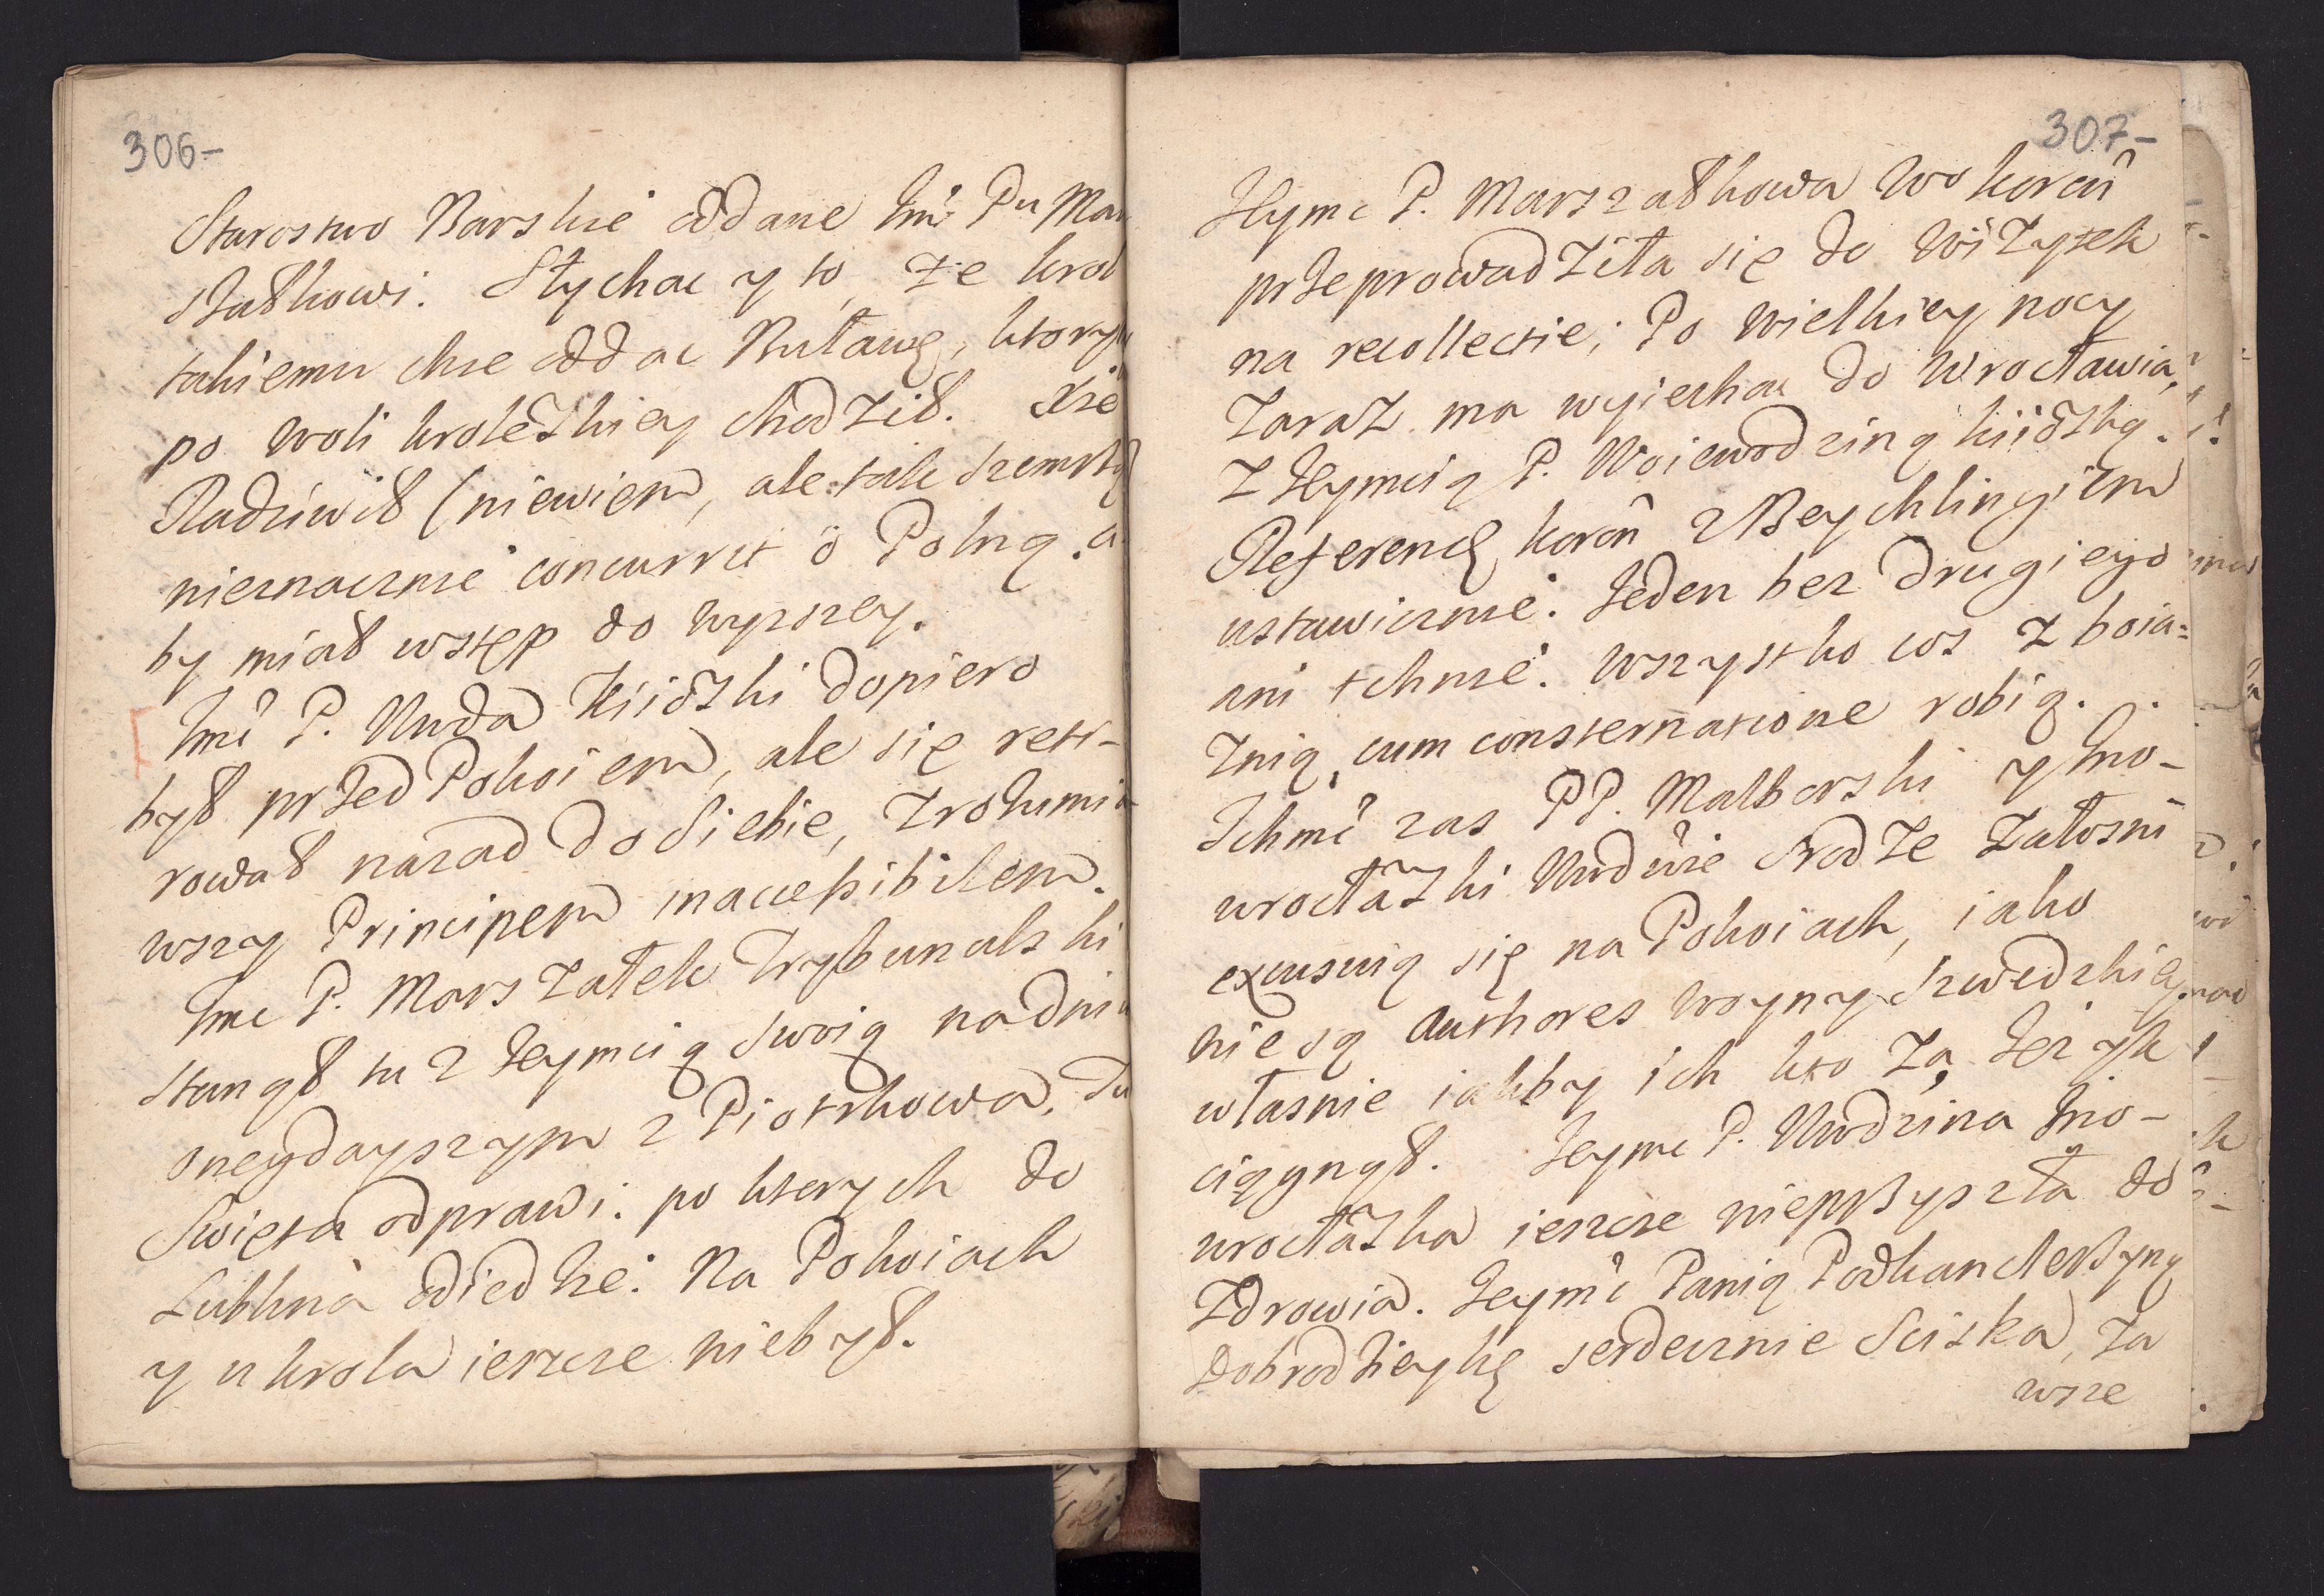 306-
Starostwo Barskie oddane Jmci Pu Mar
szałkowi. Słychac y to, ze krol
takiemu chce oddac Buławę, ktoryby
po woli krolewskiey chodził. Xże
Radziwił (niewiem, ale tak szemrzą
nieznacznie concurrit o Polną, a
by miał wstęp do wyzszey.
Jmć P. Wwda Kiiowski dopiero
był przed Pokoiem, ale się reti-
rował nazad do siebie, zrozumia
wszy Principem inaccessibilem.
Jmc P. Marszałek Trybunalski
stanął tu z Jeymcią swoią na dniu
onegdayszym z Piotrkowa. Tu
Swięta odprawi. po ktorych do
Lublina odiedzie. Na Pokoiach
y u krola ieszcze nie był.
307-
Jeymc P. Marszałkowa Wo koroń
przeprowadziła się do Wizytek
na recollectie; Po wielkiey nocy
zaraz ma wyiechac do Wrocławia,
z Jeymcią P. Woiewodziną kiiowską.
Referend koroñ z Beychlingiem
ustawicznie. Jeden bez drugiego
ani tchnie. Wszystko cos z boia=
znią, cum consternatione robią.
Ichmć zas PP. Malborski y Jno-
wrocławski Wwdowie srodze załosni
excusuią się na Pokoiach, iako
nie są Authores woyny szwedzkiey
własnie iakby ich kto za Język
ciągnął. Jeymc P. Wwdzina Jno-
wrocławska ieszcze nieprzyszła do
Zdrowia. Jeymć Panią Podkanclerzyną
Dobrodzieykę serdecznie sciska, za
wsze